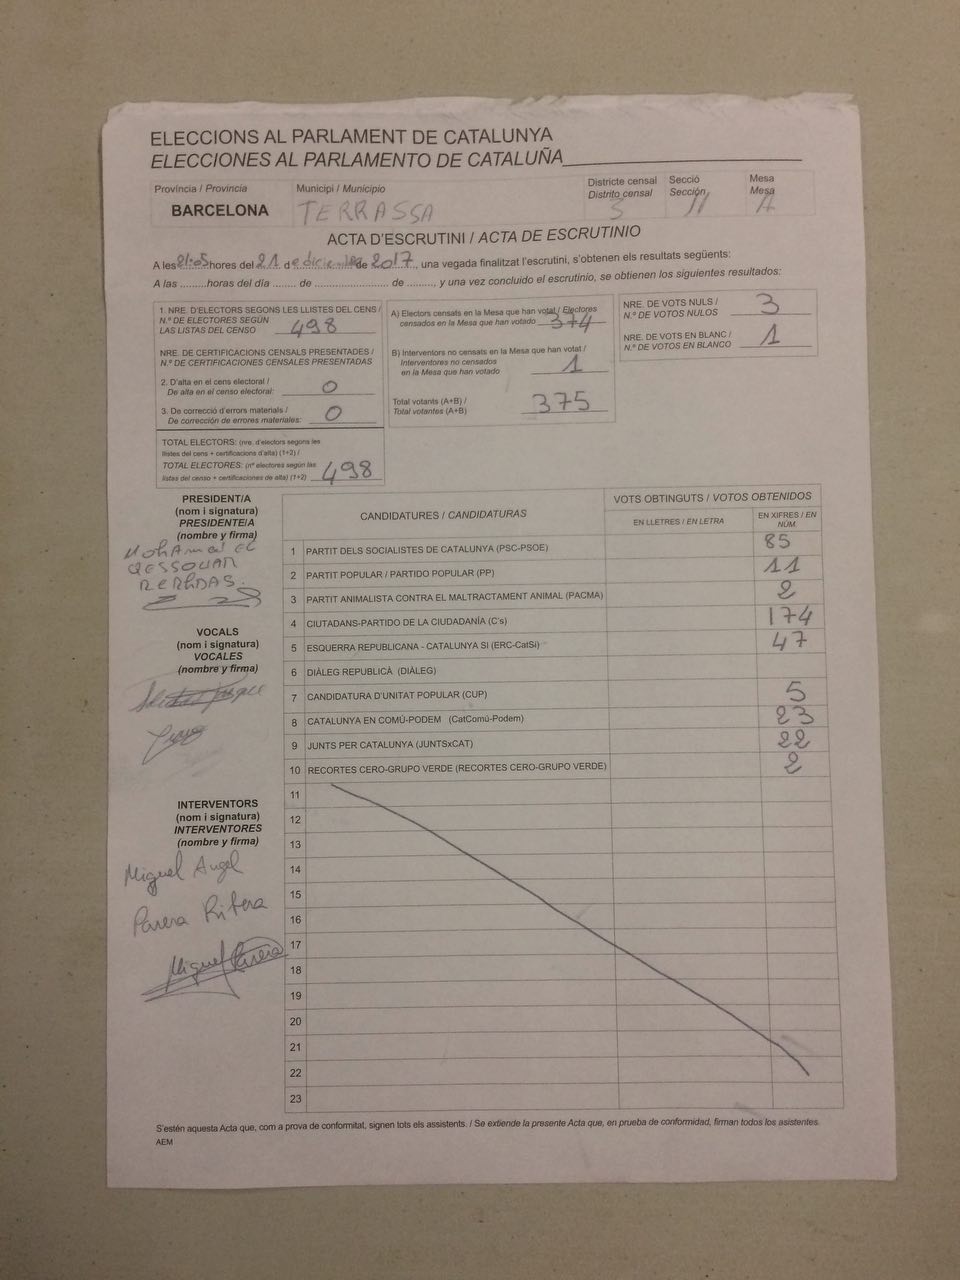 ELECCIONS AL PARLAMENT DE CATALUNYA
ELECCIONES AL PARLAMENTO DE CATALUÑA
Província / Provincia
BARCELONA
Municipi / Municipio
TERRASSA
Districte censal
Distrito censal
Secció
Sección
11
Mesa
Mesa
A
ACTA D'ESCRUTINI / ACTA DE ESCRUTINIO
A les 21:05 hores del 21 de diciembre de 2017, una vegada finalitzat l'escrutini, s'obtenen els resultats següents:
A las ......... horas del día ....... de ........................ de ........, y una vez concluido el escrutinio, se obtienen los siguientes resultados:
1. NRE. D'ELECTORS SEGONS LES LLISTES DEL CENS /
N.º DE ELECTORES SEGÚN
LAS LISTAS DEL CENSO 498
NRE. DE CERTIFICACIONS CENSALS PRESENTADES /
N.º DE CERTIFICACIONES CENSALES PRESENTADAS
2. D'alta en el cens electoral /
De alta en el censo electoral: 0
3. De correcció d'errors materials /
De corrección de errores materiales: 0
TOTAL ELECTORS: (nre. d'electors segons les
llistes del cens + certificacions d'alta) (1+2) /
TOTAL ELECTORES: (nº electores según las
listas del censo + certificaciones de alta) (1+2) 498
A) Electors censats en la Mesa que han votat / Electores
censados en la Mesa que han votado 374
B) Interventors no censats en la Mesa que han votat /
Interventores no censados
en la Mesa que han votado 1
Total votants (A+B) /
Total votantes (A+B) 375
NRE. DE VOTS NULS /
N.º DE VOTOS NULOS 3
NRE. DE VOTS EN BLANC /
N.º DE VOTOS EN BLANCO 1
PRESIDENT/A
(nom i signatura)
PRESIDENTE/A
(nombre y firma)
VOCALS
(nom i signatura)
VOCALES
(nombre y firma)
INTERVENTORS
(nom i signatura)
INTERVENTORES
(nombre y firma)
Miguel Angel
Parera Ribera
Miguel Parera
CANDIDATURES / CANDIDATURAS
VOTS OBTINGUTS / VOTOS OBTENIDOS
EN LLETRES / EN LETRA
EN XIFRES / EN NÚM.
1 PARTIT DELS SOCIALISTES DE CATALUNYA (PSC-PSOE) 85
2 PARTIT POPULAR / PARTIDO POPULAR (PP) 11
3 PARTIT ANIMALISTA CONTRA EL MALTRACTAMENT ANIMAL (PACMA) 2
4 CIUTADANS-PARTIDO DE LA CIUDADANÍA (C's) 174
5 ESQUERRA REPUBLICANA - CATALUNYA SI (ERC-CatSí) 47
6 DIÀLEG REPUBLICÀ (DIÀLEG)
7 CANDIDATURA D'UNITAT POPULAR (CUP) 5
8 CATALUNYA EN COMÚ-PODEM (CatComú-Podem) 23
9 JUNTS PER CATALUNYA (JUNTSxCAT) 22
10 RECORTES CERO-GRUPO VERDE (RECORTES CERO-GRUPO VERDE) 2
11
12
13
14
15
16
17
18
19
20
21
22
23
S'estén aquesta Acta que, com a prova de conformitat, signen tots els assistents. / Se extiende la presente Acta que, en prueba de conformidad, firman todos los asistentes.
AEM